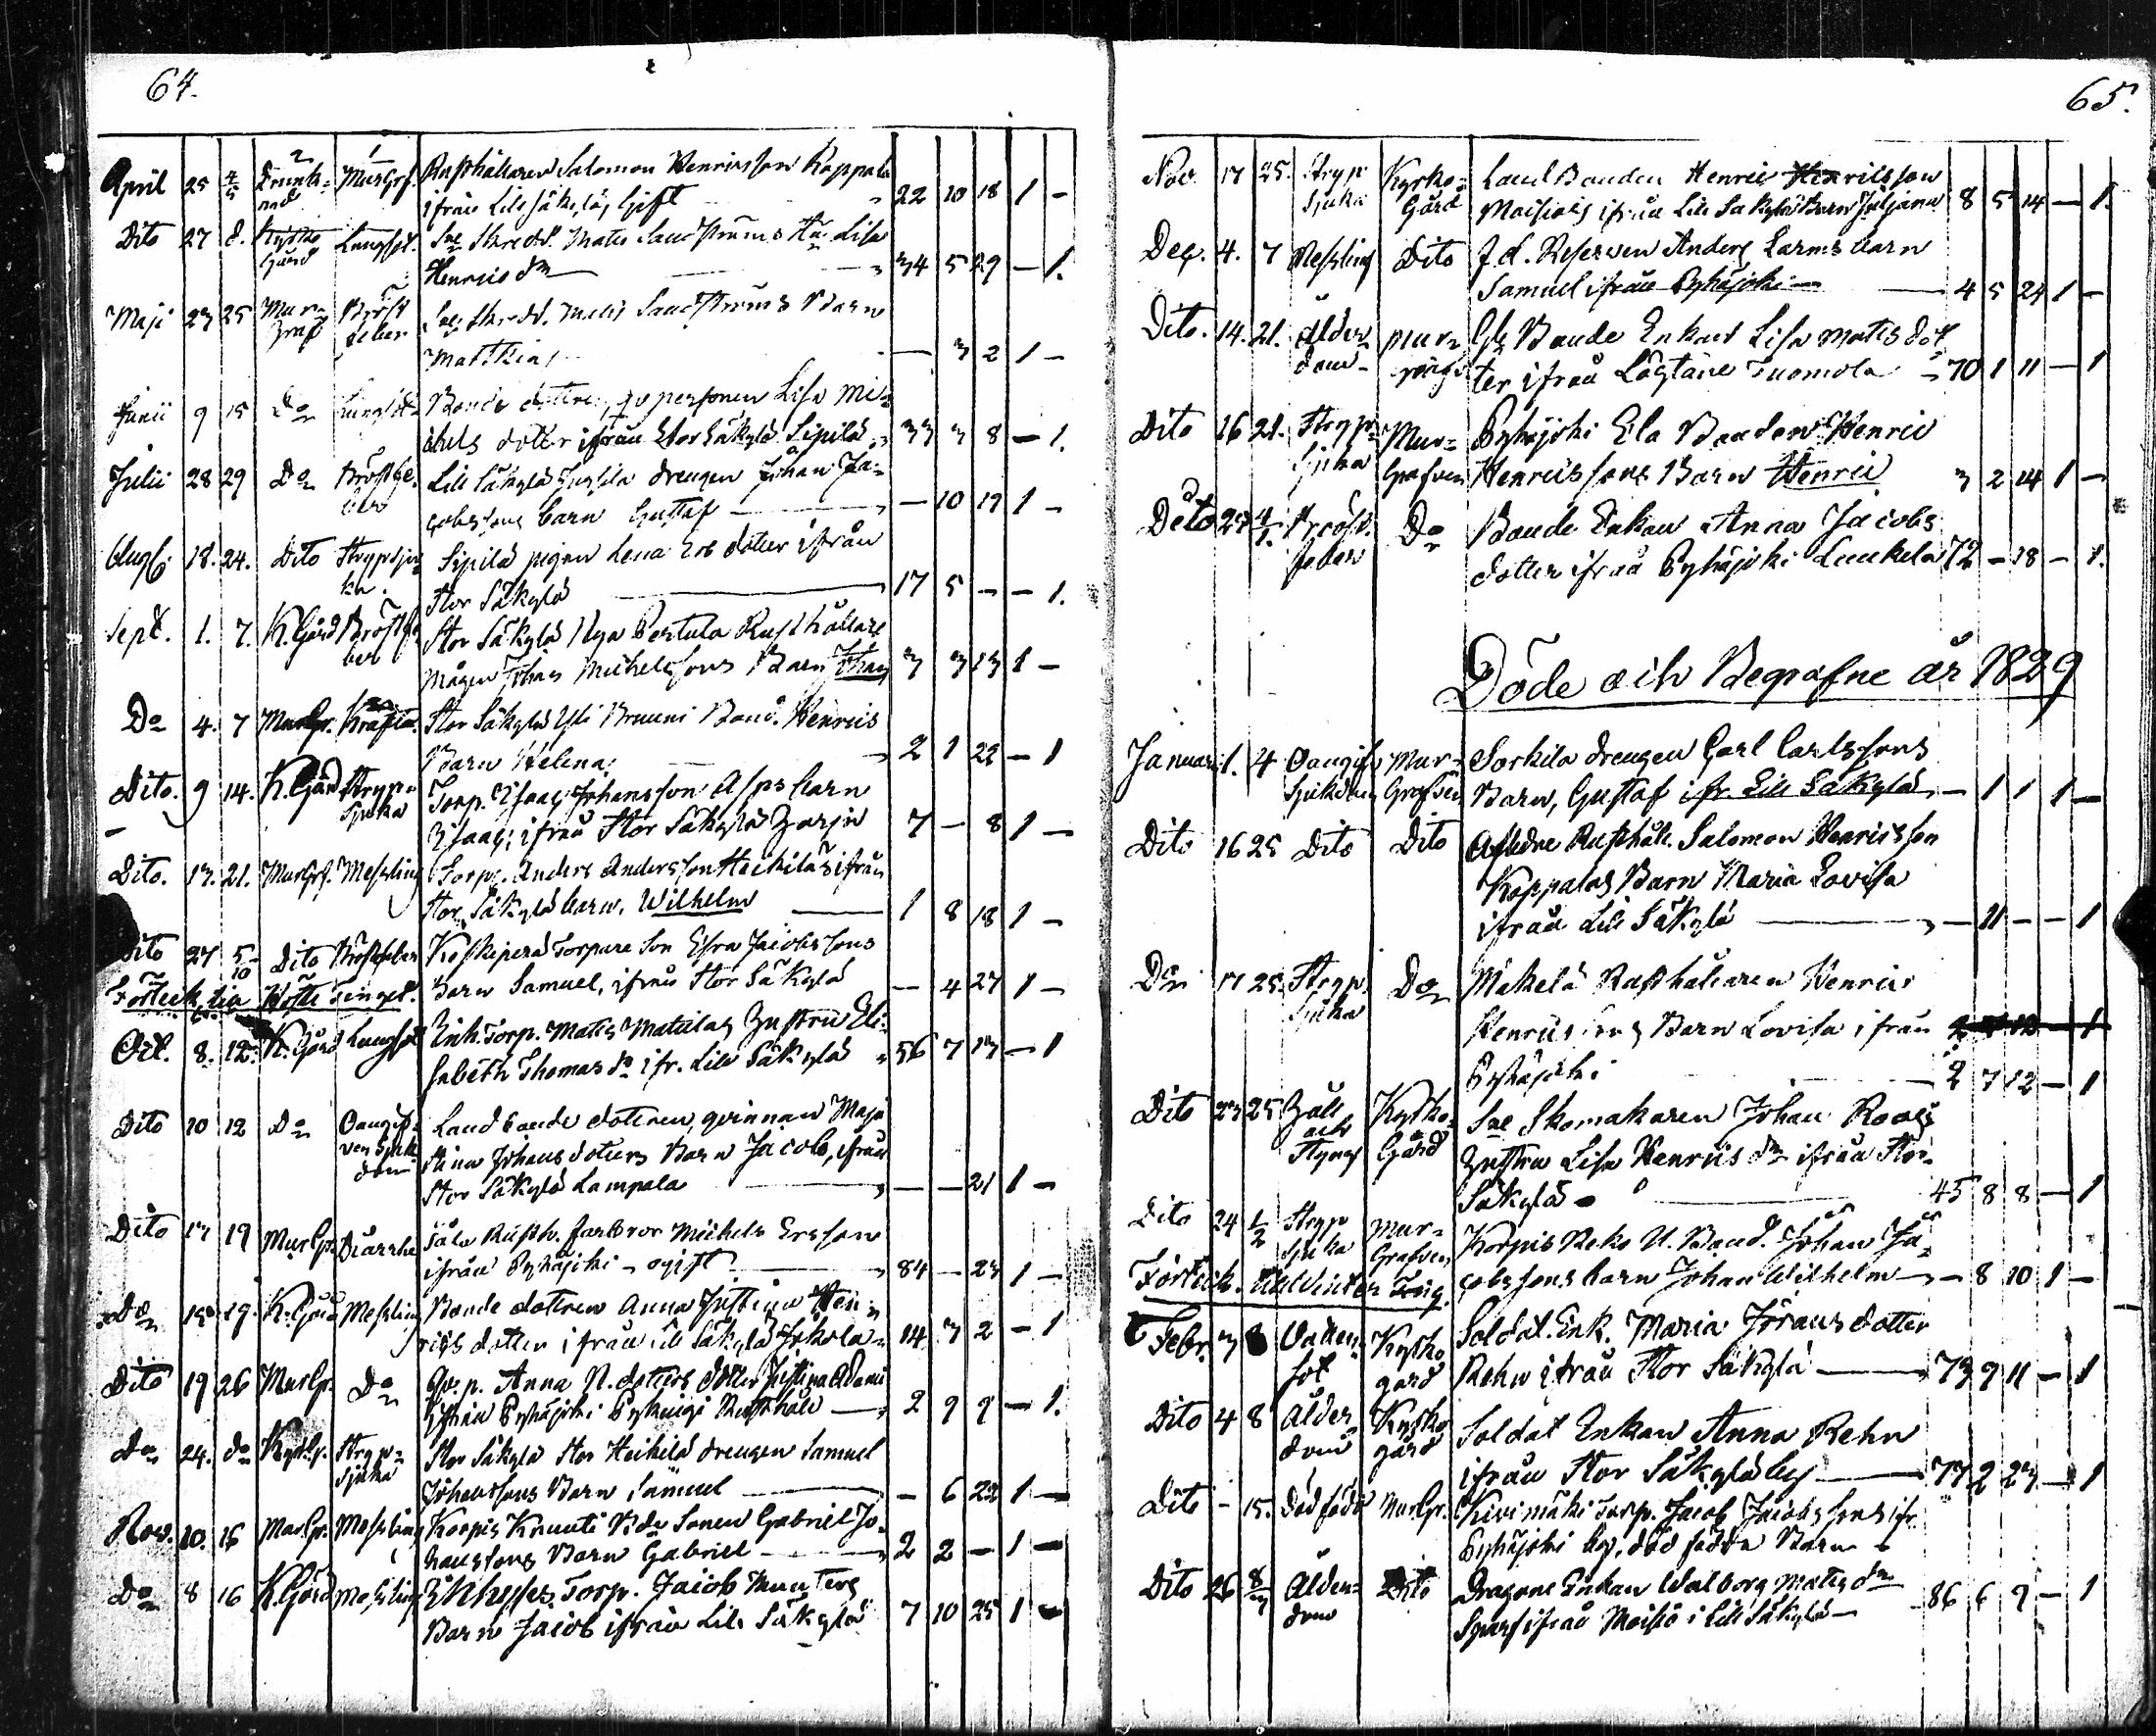 64.
April 25 4/5 Drunk- 2 MurGrf. 1 Rusthållaren Salomon Henricsson Kappala
nad ifrån Lill Säkylä, Gift 22 10 18 1 -
Dito 27 d. Kyrko Lungsot. Sn Skredd. Matts Sandströms Hu Lisa
Gård Henricsdr 34 5 29 - 1.
Maji 23 25 Mur- Bröst Skredd. Matts Sandströms Barn
graf feber Matthias - 3 2 1 -
Junii 9 15 Do Lungsot Bonde dottren, qv personen Lisa Mi-
chels dotter ifrån Stor Säkylä Sipilä 33 3 8 - 1.
Julii 28 29 Do Bröstfe- Lill Säkylä Jussila drengen Johan Ja-
ber cobssons barn Gustaf - 10 19 1 -
Aug. 18. 24. Dito Strypsju- Sipilä pigan Lena Ers dotter ifrån
ka. Stor Säkylä 17 5 - - 1.
Sept. 1. 7. K.Gård Bröstfe Stor Säkylä Nya Pertula Rusthållare
ber mågen Johan Michelssons Barn Johan 3 3 13 1 -
Do 4. 7 MurGr. Kräfta. Stor Säkylä Yli Bruuni Bond. Henrics
Barn Helena. 2 1 22 - 1
Dito. 9 14. K.Gård Stryp- Torp. Isaac Johansson Asps barn
Sjuka Isaac; ifrån Stor Säkylä 7 - 8 1 -
Dito. 13. 21. MurGrf. Messling Torp. Anders Andersson Heikilä ifrån
Stor Säkylä barn, Wilhelm 1 8 18 1 -
Dito 27 5/10 Dito Bröstfeber Koskipera Torpare Son Esra Jacobssons
Förteckn. till Höste Tinget. Barn Samuel, ifrån Stor Säkylä - 4 27 1 -
Oct. 8. 12. K.Gård Lungsot Enk. Torp. Matts Mattilas Hustru Eli-
sabeth Thomas dr ifr. Lill Säkylä 56 7 13 - 1
Dito 10 12 Do Oangif- Landbonde dottren, qvinnan Maja
ven Sjuk Stina Johansdotters Barn Jacob, ifrån
dom Stor Säkylä Lampala - - 21 1 -
Dito 13 19 MurGr. Diarrhe Rusth. farbror Michels Ersson
ifrån Pyhäjoki - ogift 84 - 23 1 -
Do 15. 19. K.Gård Messling Bonde dottren Anna Justina Hen-
rics dotter ifrån Lill Säkylä Jokola 14 3 2 - 1
Dito 19 26 MurGr. Do Qv. p. Anna N. dotters dotter Justina
ifrån Pyhäjoki Rusthåll 2 9 9 - 1.
Do 24. do Kyrkg. Stryp- Stor Säkylä Stor Heikilä drengen Samuel
sjuka Johanssons Barn Samuel - 6 22 1 -
Nov. 10. 16 MurGr. Messling Korpis Knuuti Bde Sonen Gabriel Jo-
hanssons Barn Gabriel 2 2 - 1 -
Do 8 16 K.Gård Messling Torp. Jacob Munters
Barn Jacob ifrån Lill Säkylä 7 10 25 1 -
65.
Nov. 17 25. Stryp Kyrko- Land Bonden Henric Henricsson
Sjuka Gård Moisios ifrån Lill Säkylä Barn Juljana 8 5 14 - 1.
Dec. 4. 7 Messling Dito f.d. Reserven Anders Larms barn
Samuel ifrån Pyhäjoki 4 5 24 1 -
Dito. 14. 21. Ålder- mur- Bonde Enkan Lisa Matts dot
dom ter ifrån Tuomola 70 1 11 - 1
Dito 16 21. Stryp- Mur- Pyhäjoki Ela Bonden Henric
Sjuka Grafven Henricssons Barn Henric 3 2 14 1 -
Dito 27 4/1. Bröst Do Bonde Enkan Anna Jacobs
feber dotter ifrån Pyhäjoki Luukela 72 - 18 - 1.
Döde och Begrafne år 1829
Januari 1. 4 Oangif Mur- Sorkila drengen Carl Carlssons
Sjukdom Grafven Barn, Gustaf ifr. Lill Säkylä - 1 1 1 -
Dito 16 25 Dito Dito Afledne Rusthåll. Salomon Henricsson
Kappalas Barn Maria Lovisa
ifrån Lill Säkylä - 11 - - 1
Do 17 25. Stryp Do Mäkelä Rusthållaren Henric
Sjuka Henricssons Barn Lovisa ifrån
Pyhäjoki 2 7 12 - 1
Dito 23 25 Håll Kyrko- Sne Skomakaren Johan Roos
och Gård Hustru Lisa Henrics dr ifrån Stor
Styng Säkylä 45 8 8 - 1
Dito 24 1/2 Stryp mur- Korpis Reko U. Bond. Johan Ja-
Sjuka Grafven cobssons barn Johan Wilhelm - 8 10 1 -
Förteckn. till Winter Ting.
Febr. 3 8 Vatten- Kyrko Soldat. Enk. Maria Jöransdotter
sot gård Rehn ifrån Stor Säkylä 73 9 11 - 1
Dito 4 8 Ålder Kyrko Soldat Enkan Anna Rehn
dom gård ifrån Stor Säkylä by 77 2 23 - 1
Dito - 15. Död född MurGr. Kivimäki Torp. Jacob Jacobssons ifr.
Pyhäjoki by, död födda Barn
Dito 26 8/3 Ålder- Dito Dragone Enkan Walborg Matts dr
dom ifrån Moisio i Lill Säkylä 86 6 9 - 1